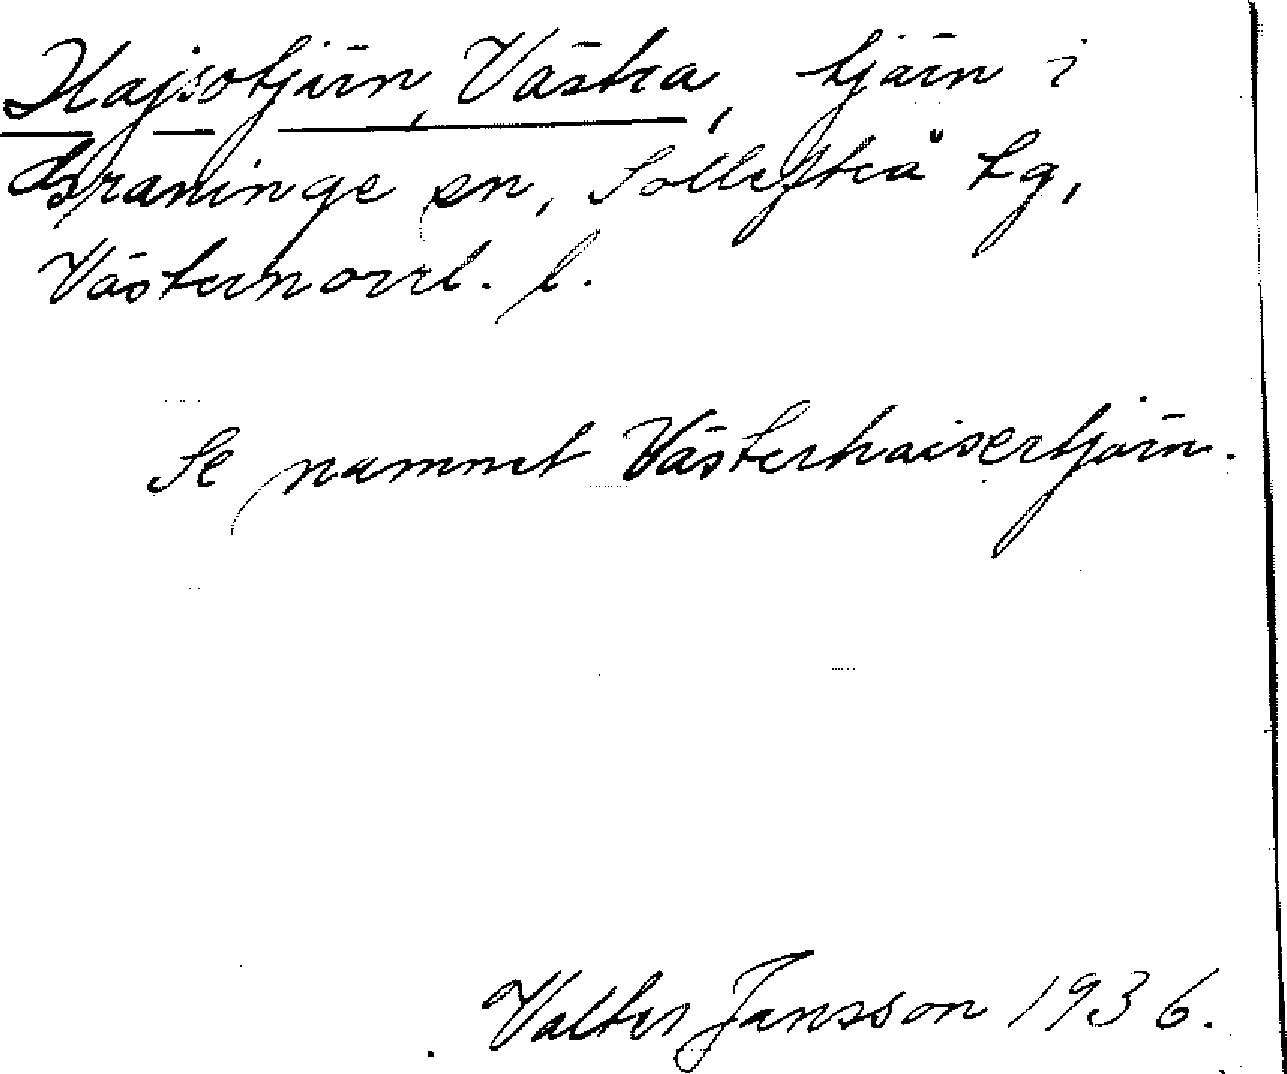 Hajsotjärn, Västra, tjärn i
Graninge sn, Sollefteå tg,
Västernorrl. l.
Se namnet Västerhaisertjärn.
Valter Jansson 1936.